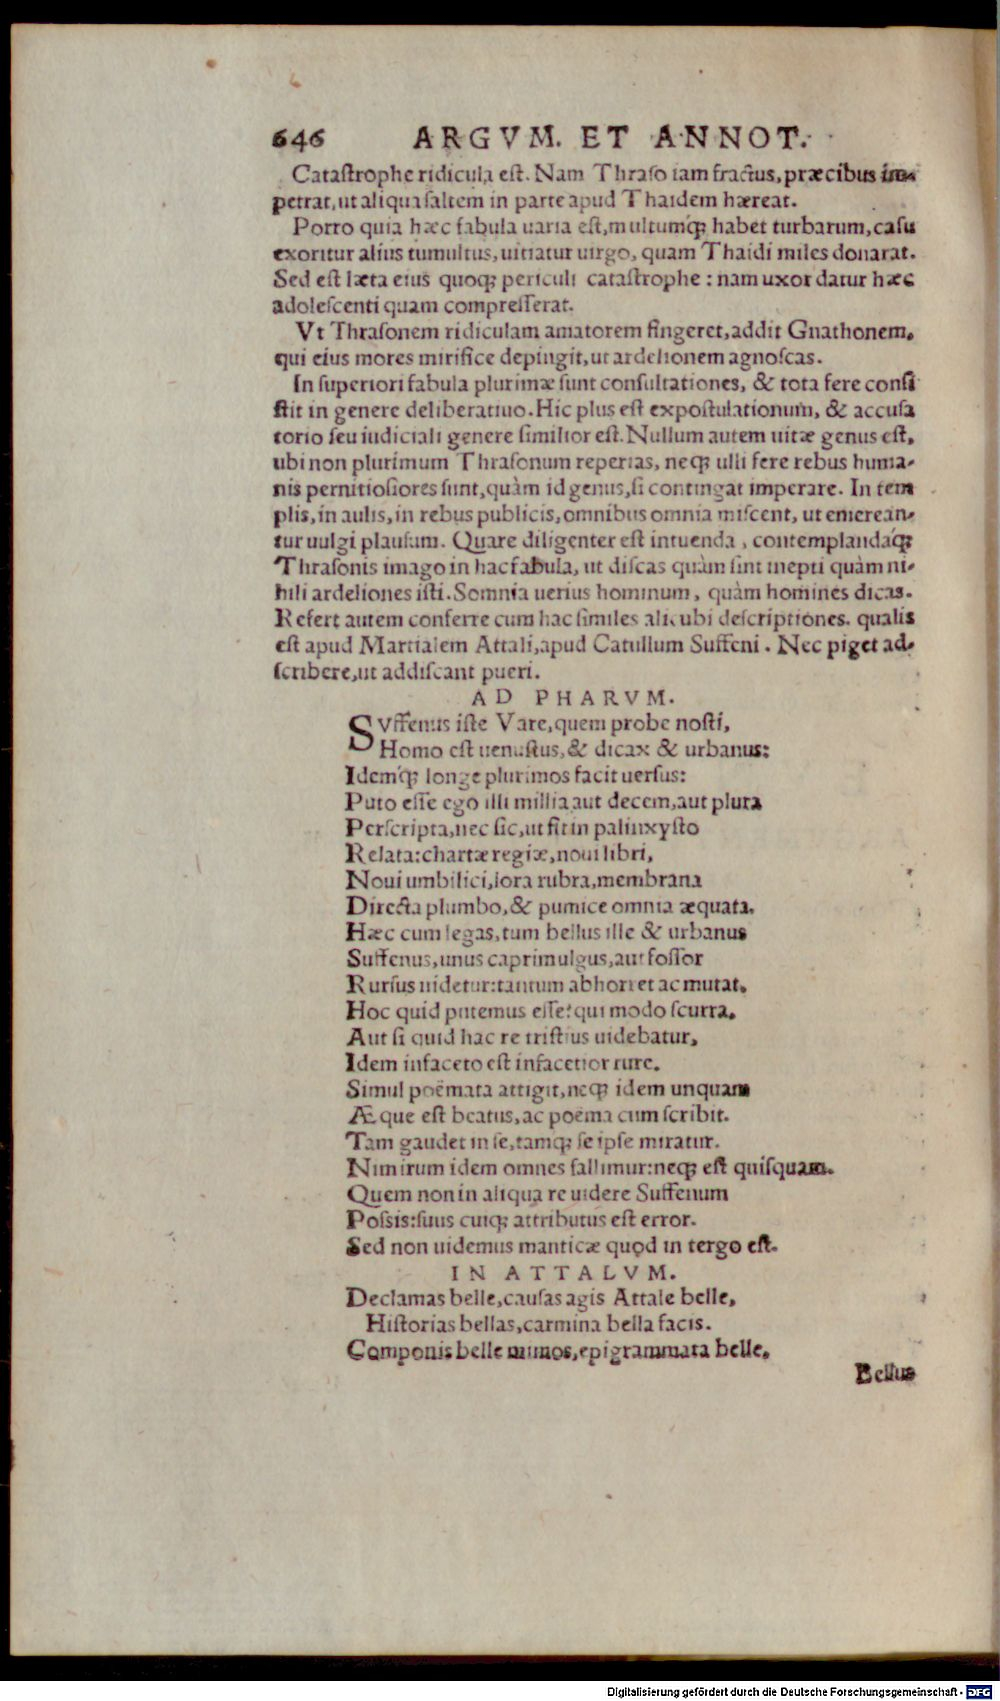 646 ARGVM. ET ANNOT.
Catastrophe ridicula est. Nam Thraso iam fractus, præcibus im-
petrat, ut aliqua saltem in parte apud Thaidem hæreat.
Porro quia hæc fabula uaria est, multumq́; habet turbarum, casu
exoritur alius tumultus, uitiatur uirgo, quam Thaidi miles donarat.
Sed est læta eius quoq; periculi catastrophe: nam uxor datur hæc
adolescenti quam compresserat.
Vt Thrasonem ridiculam amatorem fingeret, addit Gnathonem,
qui eius mores mirifice depingit, ut ardelionem agnoscas.
In superiori fabula plurimæ sunt consultationes, & tota fere consi
stit in genere deliberatiuo. Hic plus est expostulationum, & accusa
torio seu iudiciali genere similior est. Nullum autem uitæ genus est,
ubi non plurimum Thrasonum reperias, neq; ulli fere rebus huma-
nis pernitiosiores sunt, quàm id genus, si contingat imperare. In tem
plis, in aulis, in rebus publicis, omnibus omnia miscent, ut emerean-
tur uulgi plausum. Quare diligenter est intuenda, contemplandaq́;
Thrasonis imago in hac fabula, ut discas quàm sint inepti quàm ni-
hili ardeliones isti. Somnia uerius hominum, quàm homines dicas.
Refert autem conferre cum hac similes alicubi descriptiones. qualis
est apud Martialem Attali, apud Catullum Suffeni. Nec piget ad-
scribere, ut addiscant pueri.
AD PHARVM.
SVffenus iste Vare, quem probe nosti,
Homo est uenustus, & dicax & urbanus:
Idemq́; longe plurimos facit uersus:
Puto esse ego illi millia aut decem, aut plura
Perscripta, nec sic, ut fit in palinxysto
Relata: chartæ regiæ, noui libri,
Noui umbilici, lora rubra, membrana
Directa plumbo, & pumice omnia æquata.
Hæc cum legas, tum bellus ille & urbanus
Suffenus, unus caprimulgus, aut fossor
Rursus uidetur: tantum abhorret ac mutat.
Hoc quid putemus esse? qui modo scurra,
Aut si quid hac re tristius uidebatur,
Idem infaceto est infacetior rure.
Simul poëmata attigit, neq; idem unquam
Æque est beatus, ac poëma cum scribit.
Tam gaudet in se, tamq; se ipse miratur.
Nimirum idem omnes fallimur: neq; est quisquam.
Quem non in aliqua re uidere Suffenum
Possis: suus cuiq; attributus est error.
Sed non uidemus manticæ quod in tergo est.
IN ATTALVM.
Declamas belle, causas agis Attale belle,
Historias bellas, carmina bella facis.
Componis belle mimos, epigrammata belle,
Bellus
Digitalisierung gefördert durch die Deutsche Forschungsgemeinschaft - DFG